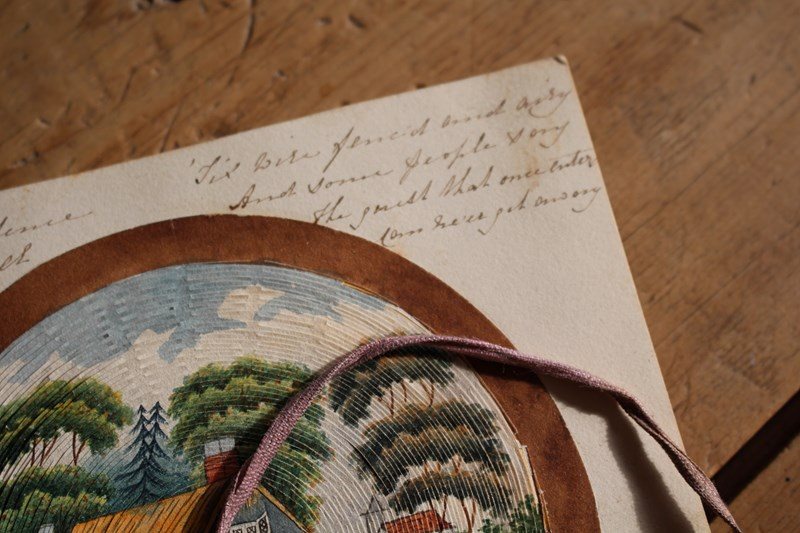 'Tis Wire fenc'd and airy
And some people say
the guest that once enters
Can ne'er get away